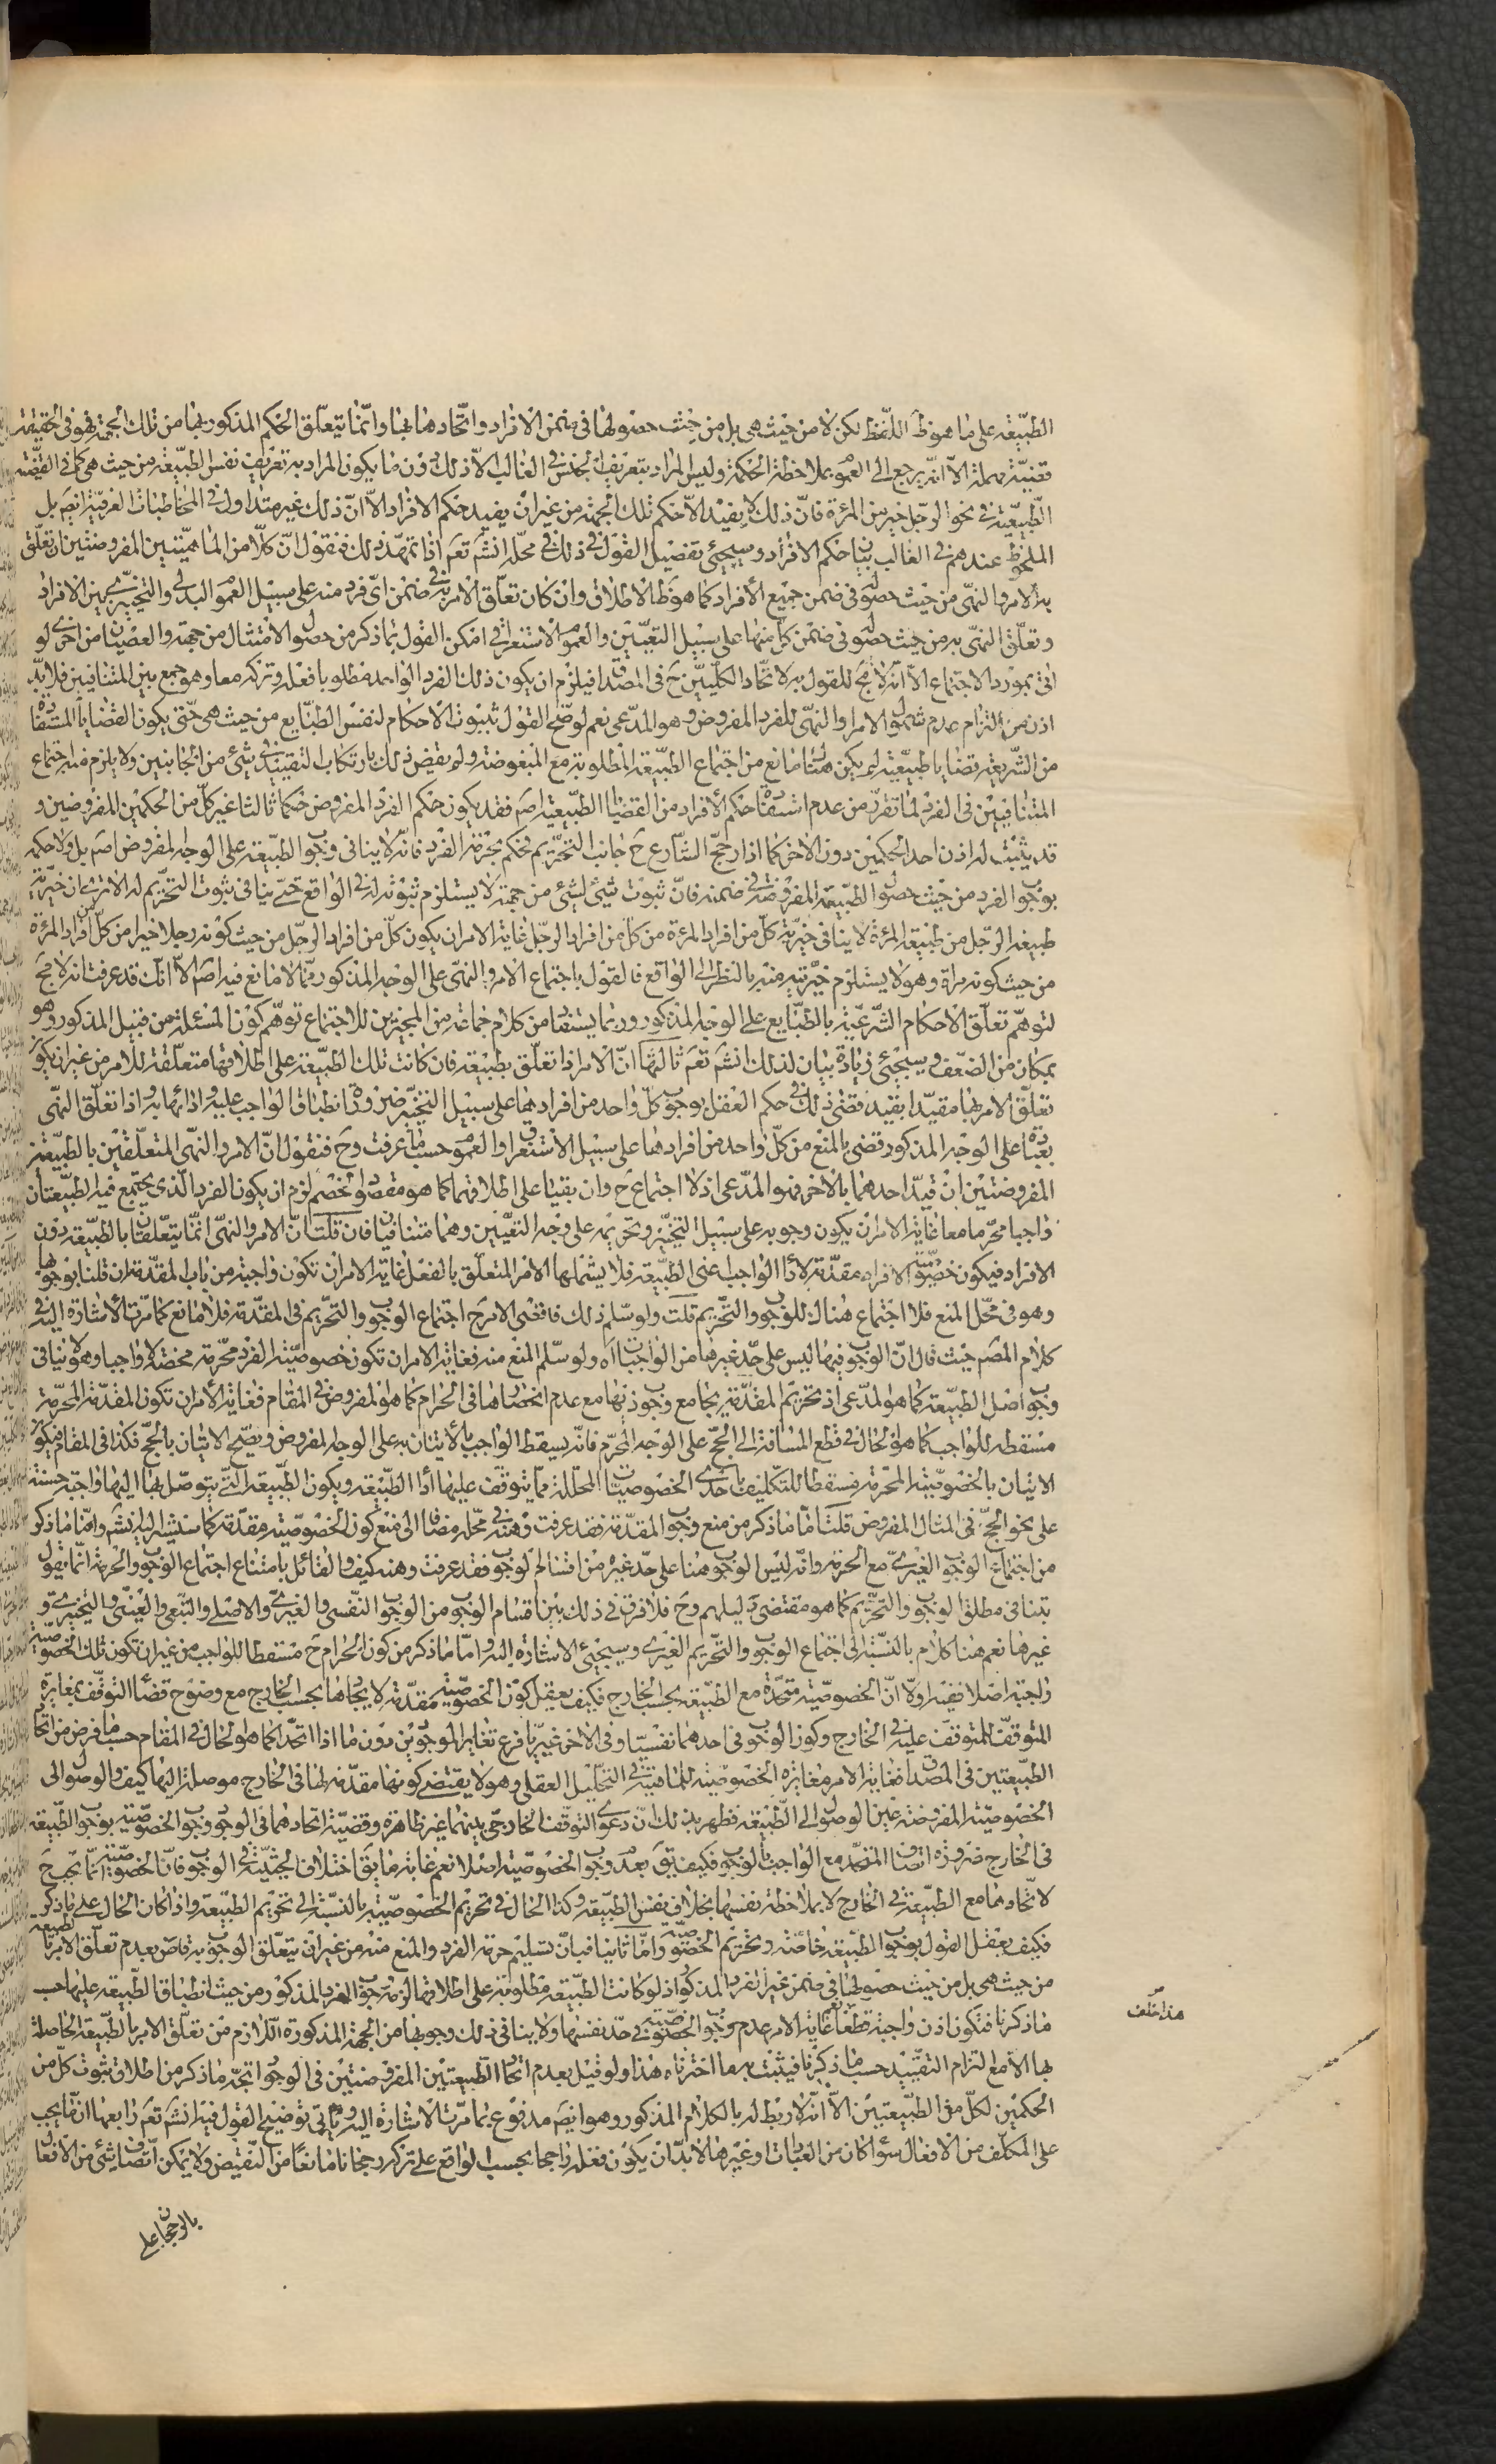 الطبيعة على ما هو ظ اللفظ لكن لا من حيث هى بل من حيث حصولها فى ضمن الافراد واتحادها بها وانما يتعلق الحكم المذكور بها من تلك الجهة فهو فى الحقيقة
قضية مهملة الا انه يرجع الى العموم بملاحظة الحكمة وليس المراد بتعريف الجنس فى الغالب الا ذلك دون ما يكون المراد به تعريف نفس الطبيعة من حيث هى كما فى القضية
الطبيعية فى نحو الرجل خير من المرئة فان ذلك لا يفيد الا حكم تلك الجهة من غير ان يفيد حكم الافراد الا ان ذلك غير متداول فى المخاطبات العرفية ايضم بل
الملحوظ عندهم فى الغالب بيان حكم الافراد وسيجئ تفصيل القول فى ذلك فى محله انشم تعم اذا تمهد ذلك فنقول ان كلا من الماهيتين المفروضتين ان تعلق
به الامر والنهى من حيث حصوله فى ضمن جميع الأفراد كما هو ظ الاطلاق وان كان تعلق الامر به فى ضمن اى فرد منه على سبيل العموم البدلى والتخيير بين الافراد
وتعلق النهى به من حيث حصوله فى ضمن كل منها على سبيل التعيين والعموم الاستغراقى امكن القول بما ذكر من حصول الامتثال من جهة والعصيان من اخرى لو
اتى بمورد الاجتماع الا انه لا مجح للقول به لاتحاد الكليين ح فى المصداق فيلزم ان يكون ذلك الفرد الواحد مطلوبا فعله وتركه معا وهو جمع بين المتنافيين فلا بد
اذن من التزام عدم شمول الامر او النهى للفرد المفروض وهو المدعى نعم لو صح القول بثبوت الاحكام لنفس الطبايع من حيث هى حتى يكون القضايا المستفادة
من الشريعة قضايا طبيعية لم يكن هناك مانع من اجتماع الطبيعة المطلوبة مع المبغوضة ولم يقض ذلك بارتكاب التقييد فى شئ من الجانبين ولا يلزم منه اجتماع
المتنافيين فى الفرد لما تقرر من عدم استفادة حكم الأفراد من القضايا الطبيعية اصم فقد يكون حكم الفرد المفروض حكما ثالثا غير كل من الحكمين المفروضين و
قد يثبت له اذن احد الحكمين دون الاخر كما اذا رجح الشارع ح جانب التحريم فحكم بحرمة الفرد فانه لا ينافى وجوب الطبيعة على الوجه المفروض اصم بل ولا حكمه
بوجوب الفرد من حيث حصول الطبيعة المفروضة فى ضمنه فان ثبوت شئ لشئ من جهة لا يستلزم ثبوته له فى الواقع حتى ينافى ثبوت التحريم له الا ترى ان خيرية
طبيعة الرجل من طبيعة المرئة لا ينافى خيرية كل من افراد المرئة من كل من افراد الرجل غاية الامر ان يكون كل من افراد الرجل من حيث كونه رجلا خيرا من كل من افراد المرئة
من حيث كونه مراة وهو لا يستلزم خيريته منه بالنظر الى الواقع فالقول باجتماع الامر والنهى على الوجه المذكور مما لا مانع فيه اصم الا انك قد عرفت انه لا مجح
لتوهم تعلق الاحكام الشرعية بالطبايع على الوجه المذكور وربما يستفاد من كلام جماعة من المجيزين للاجتماع توهم كون المسئلة من قبيل المذكور وهو
بمكان من الضعف وسيجئ زيادة بيان لذلك انشم تعم ثالثها ان الامر اذا تعلق بطبيعة فان كانت تلك الطبيعة على اطلاقها متعلقة للامر من غير ان يكون
تعلق الامر بها مقيدا بقيد قضى ذلك فى حكم العقل بوجوب كل واحد من افرادها على سبيل التخيير ضرورة انطباق الواجب عليه واذا ئها به واذا تعلق النهى
بها على الوجه المذكور قضى بالمنع من كل واحد من افرادها على سبيل الاستغراق والعموم حسبما عرفت وح فنقول ان الامر والنهى المتعلقين بالطبيعتين
المفروضتين ان قيد احدهما بالاخر فهو المدعى اذ لا اجتماع ح وان بقيا على اطلاقهما كما هو مقصود الخصم لزم ان يكون الفرد الذى يجتمع فيه الطبيعتان
واجبا محرما معا غاية الامر ان يكون وجوبه على سبيل التخيير وتحريمه على وجه التعيين وهما متنافيان فان قلت ان الامر والنهى انما يتعلقان بالطبيعة دون
الافراد فيكون خصوصية الافراد مقدمة لأداء الواجب اعنى الطبيعة فلا يشملها الامر المتعلق بالفعل غاية الامر ان تكون واجبة من باب المقدمة ان قلنا بوجوبها
وهو فى محل المنع فلا اجتماع هناك للوجوب والتحريم قلت ولو سلم ذلك فاقصى الامر ح اجتماع الوجوب والتحريم فى المقدمة فلا مانع كما مرت الأشارة اليه فى
كلام المصم حيث قال ان الوجوب فيها ليس على حد غيرها من الواجبات اه ولو سلم المنع منه فغاية الامر ان تكون خصوصية الفرد محرمة محضة لا واجبا وهو لا ينافى
وجوب اصل الطبيعة كما هو المدعى اذ تحريم المقدمة يجامع وجوب ذيها مع عدم انحصارها فى الحرام كما هو المفروض فى المقام فغاية الأمر ان تكون المقدمة المحرمة
مسقطه للواجب كما هو الحال فى قطع المسافة الى الحج على الوجه المحرم فانه يسقط الواجب بالأتيان به على الوجه المفروض ويصح الاتيان بالحج فكذا فى المقام فيكون
الاتيان بالخصوصية المحرمة مسقطا للتكليف باحدى الخصوصيات المحللة مما يتوقف عليها أداء الطبيعة ويكون الطبيعة التى يتوصل بها اليها واجبة حسنة
على نحو الحج فى المثال المفروض قلت اما ما ذكر من منع وجوب المقدمة فقد عرفت وهنه فى محله مضافا الى منع كون الخصوصية مقدمة كما سنشير اليه انشم واما ما ذكر
من اجتماع الوجوب الغيرى مع الحرمة وانه ليس الوجوب هنا على حد غيره من اقسام الوجوب فقد عرفت وهنه كيف والقائل بامتناع اجتماع الوجوب والحرمة انما يقول
بتنافى مطلق الوجوب والتحريم كما هو مقتضى دليلهم وح فلا فرق فى ذلك بين اقسام الوجوب من الوجوب النفسى والغيرى والاصلى والتبعى والعينى والتخييرى و
غيرها نعم هنا كلام بالنسبة الى اجتماع الوجوب والتحريم الغيرى وسيجئ الاشارة اليه واما ما ذكر من كون الحرام ح مسقطا للواجب من غير ان تكون تلك الخصوصية
واجبة اصلا ففيه اولا ان الخصوصية متحدة مع الطبيعة بحسب الخارج فكيف يعقل كون الخصوصية مقدمة لايجادها بحسب الخارج مع وضوح قضاء التوقف بمغايرة
المتوقف للمتوقف عليه فى الخارج وكون الوجوب فى احدهما نفسيا وفى الاخر غيريا فرع تغاير الموجودين دون ما اذا اتحدا كما هو الحال فى المقام حسبما فرض من اتحاد
الطبيعتين فى المصداق فغاية الامر مغايرة الخصوصية للماهية فى التحليل العقلى وهو لا يقتضى كونها مقدمة لها فى الخارج موصلة اليها كيف والوصول الى
الخصوصية المفروضة عين الوصول الى الطبيعة فظهر بذلك ان دعوى التوقف الخارجى بينهما غير ظاهرة وقضية اتحادهما فى الوجود وجوب الخصوصية بوجوب الطبيعة
فى الخارج ضرورة اتصاف المتحد مع الواجب بالوجوب فكيف يق بعدم وجوب الخصوصية اصلا نعم غاية ما يق اختلاف الحيثية فى الوجوب فان الخصوصية انما يجب ح
لاتحادها مع الطبيعة فى الخارج لا بملاحظة نفسها بخلاف نفس الطبيعة وكذا الحال فى تحريم الخصوصية بالنسبة الى تحريم الطبيعة واذا كان الحال على ما ذكر
فكيف يعقل القول بوجوب الطبيعة خاصة وتحريم الخصوصية واما ثانيا فبان تسليم حرمة الفرد والمنع منه من غير ان يتعلق الوجوب به قاض بعدم تعلق الامر بالطبيعة
من حيث هى بل من حيث حصولها فى ضمن غير الفرد المذكور اذ لو كانت الطبيعة مطلوبة على اطلاقها لزمه وجوب الفرد المذكور من حيث انطباق الطبيعة عليها حسب
ما ذكرنا فتكون اذن واجبة قطعا غاية الامر عدم وجوب الخصوصية فى حد نفسها ولا ينافى ذلك وجوبها من الجهة المذكورة اللازم من تعلق الامر بالطبيعة الحاصلة
هذا خلف صر
بها الا مع التزام التقييد حسبما ذكرنا فيثبت به ما اخترناه هذا ولو قيل بعدم اتحاد الطبيعتين المفروضتين فى الوجود اتجه ما ذكر من اطلاق ثبوت كل من
الحكمين لكل من الطبيعتين الا انه لا ربط له بالكلام المذكور وهو ايضم مدفوع بما مرت الاشارة اليه ويأتى توضيح القول فيه انشم تعم رابعها ان ما يجب
على المكلف من الافعال سواء كان من العبادات او غيرها لا بد ان يكون فعله راجحا بحسب الواقع على تركه رجحانا مانعا من النقيض ولا يمكن اتصاف شئ من الافعال
بالرجحان على